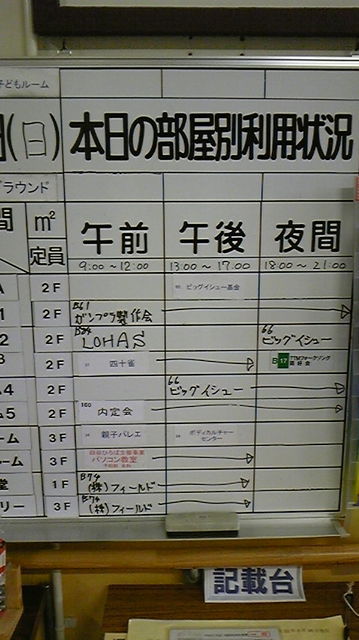 子どもルーム
(日) 本日の部屋別利用状況
ラウンド
間 m² 定員
午前 午後 夜間
9:00～12:00 13:00～17:00 18:00～21:00
2F ビッグイシュー基金
1 2F B61 ガンプラ製作会
2 2F LOHAS 66 ビッグイシュー
3 2F 四十雀 B17 TTMフォークソング 愛好会
4 2F 66 ビッグイシュー
5 2F 160 内定会
ーム 3F 親子バレエ ボディカルチャー センター
ーム 3F パソコン教室
堂 1F B74 (株)フィールド
リー 3F B74 (株)フィールド
記載台